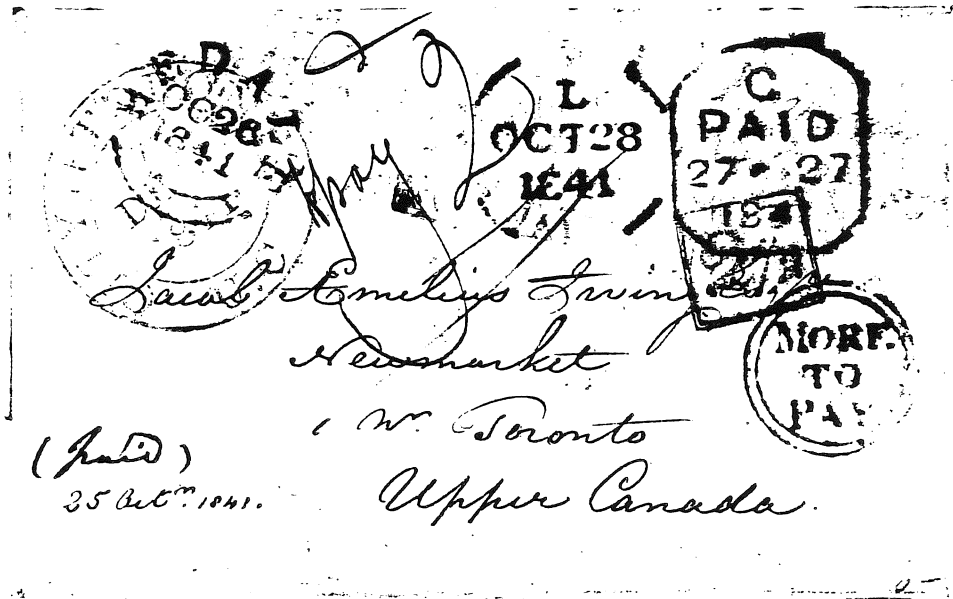 OC 28
1841
L
OCT 28
1841
C
PAID
27 27
184
pay
Jacob Æmelius Irving
Newmarket
Nr. Toronto
Upper Canada.
MORE
TO
PAY
(paid)
25 Octr. 1841.